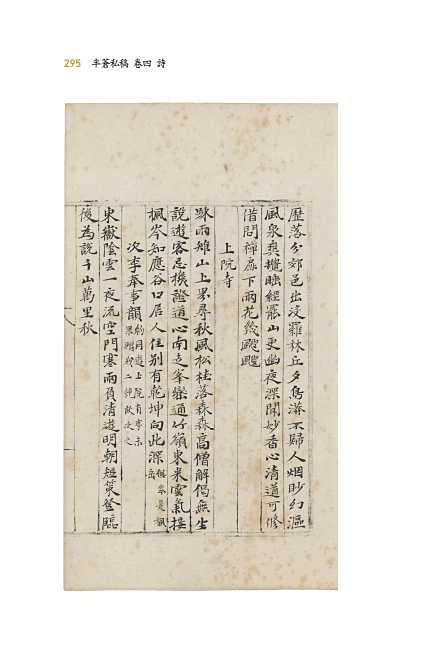 295 半蒼私稿 卷四 詩
歷落分郊邑出沒羅林丘夕鳥滿不歸人烟眇幻漚
風泉爽攪睡經罷山更幽夜深聞妙香心清道可修
借問禪扉下雨花幾颼颼
上院寺
踈雨雉山上界尋秋風松桂落森森高僧解偈無生
說遊客忘機證道心南走峯巒通竹嶺東來雲氣接
楓岑知應谷口居人住別有乾坤向此深 楓岳
次李奉事韻
東嶽陰雲一夜流空門寒雨負清遊明朝短策登臨
後為說千山萬里秋